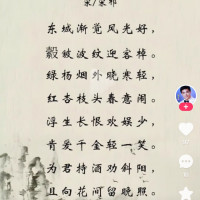 宋/宋祁
东城渐觉风光好，
縠皱波纹迎客棹。
绿杨烟外晓寒轻，
红杏枝头春意闹。
浮生长恨欢娱少，
肯爱千金轻一笑。
为君持酒劝斜阳，
且向花间留晚照。